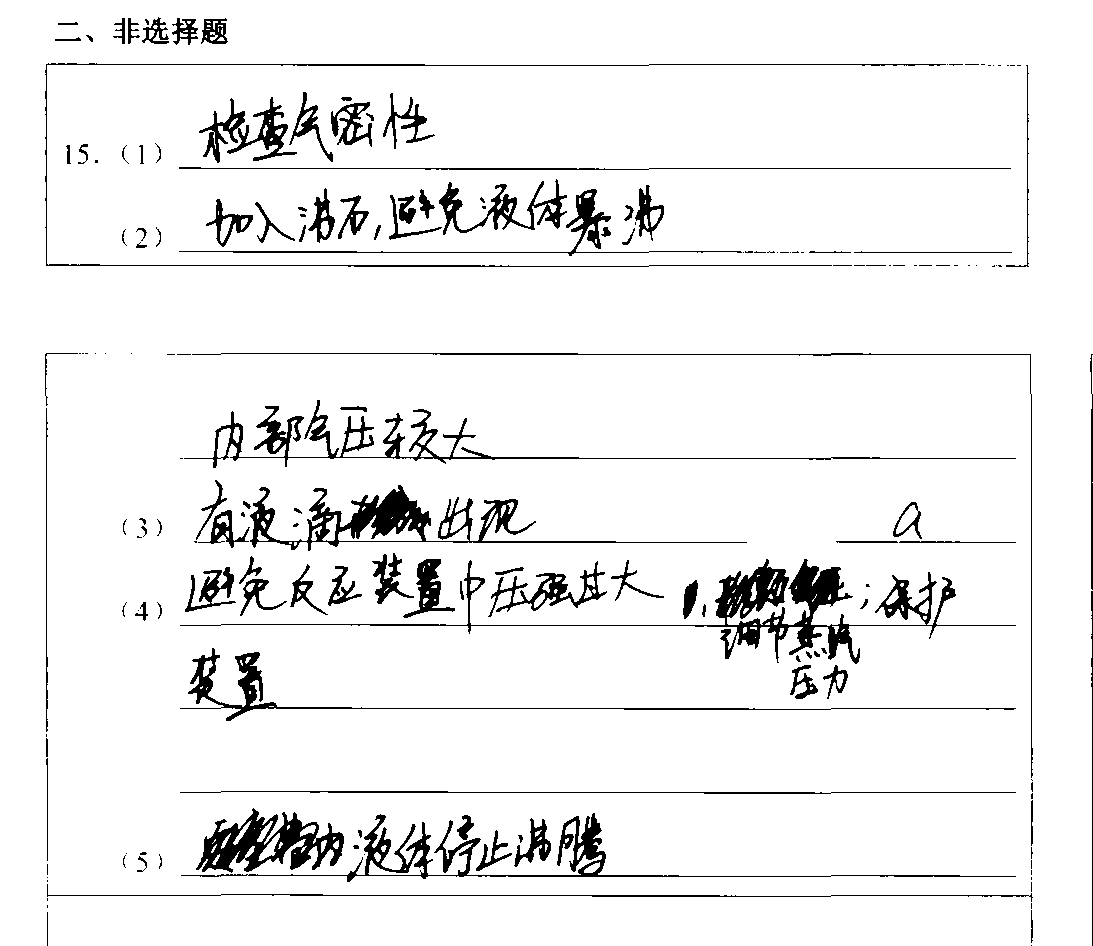 二、非选择题
15.（1） 检查气密性
（2） 加入沸石,避免液体暴沸
内部气压较大
（3） 有液滴出现 a
（4） 避免反应装置中压强过大 ；保护
调节蒸汽
压力
装置
（5） 液体停止沸腾